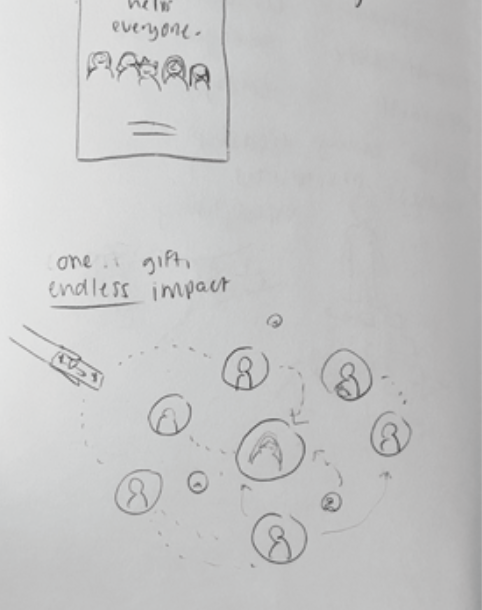 help
everyone.
one gift,
endless impact